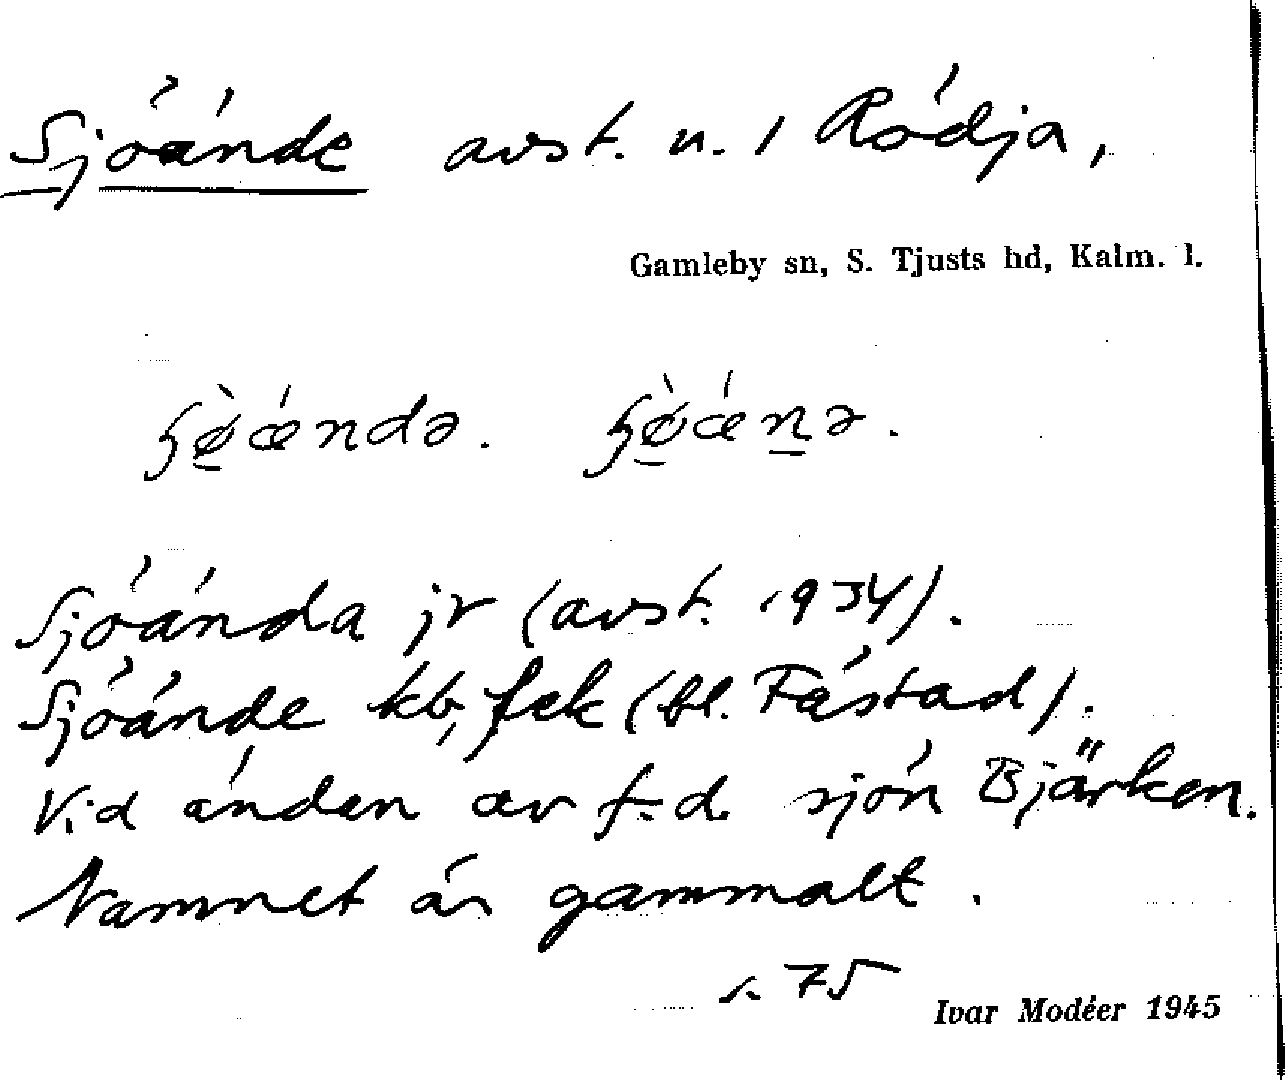 Sjöände avst. u. / Rödja,
Gamleby sn, S. Tjusts hd, Kalm. l.
Sjöända jr (avst. 1934).
Sjöände kb, fek (bl. Fåstad).
Vid änden av f.d. sjön Bjärken.
Namnet är gammalt.
s. 75
Ivar Modéer 1945